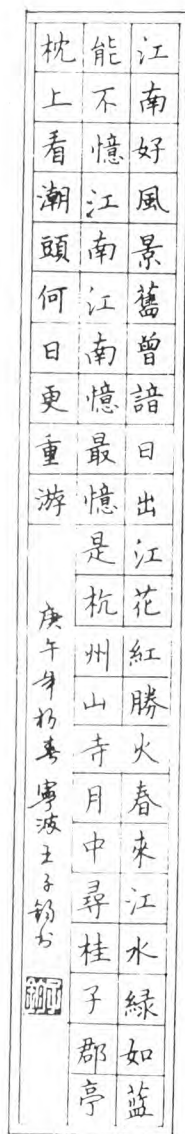 江南好風景舊曾諳日出江花紅勝火春來江水緑如蓝
能不憶江南江南憶最憶是杭州山寺月中尋桂子郡亭
枕上看潮頭何日更重游
庚午年初春寧波王子鈞书